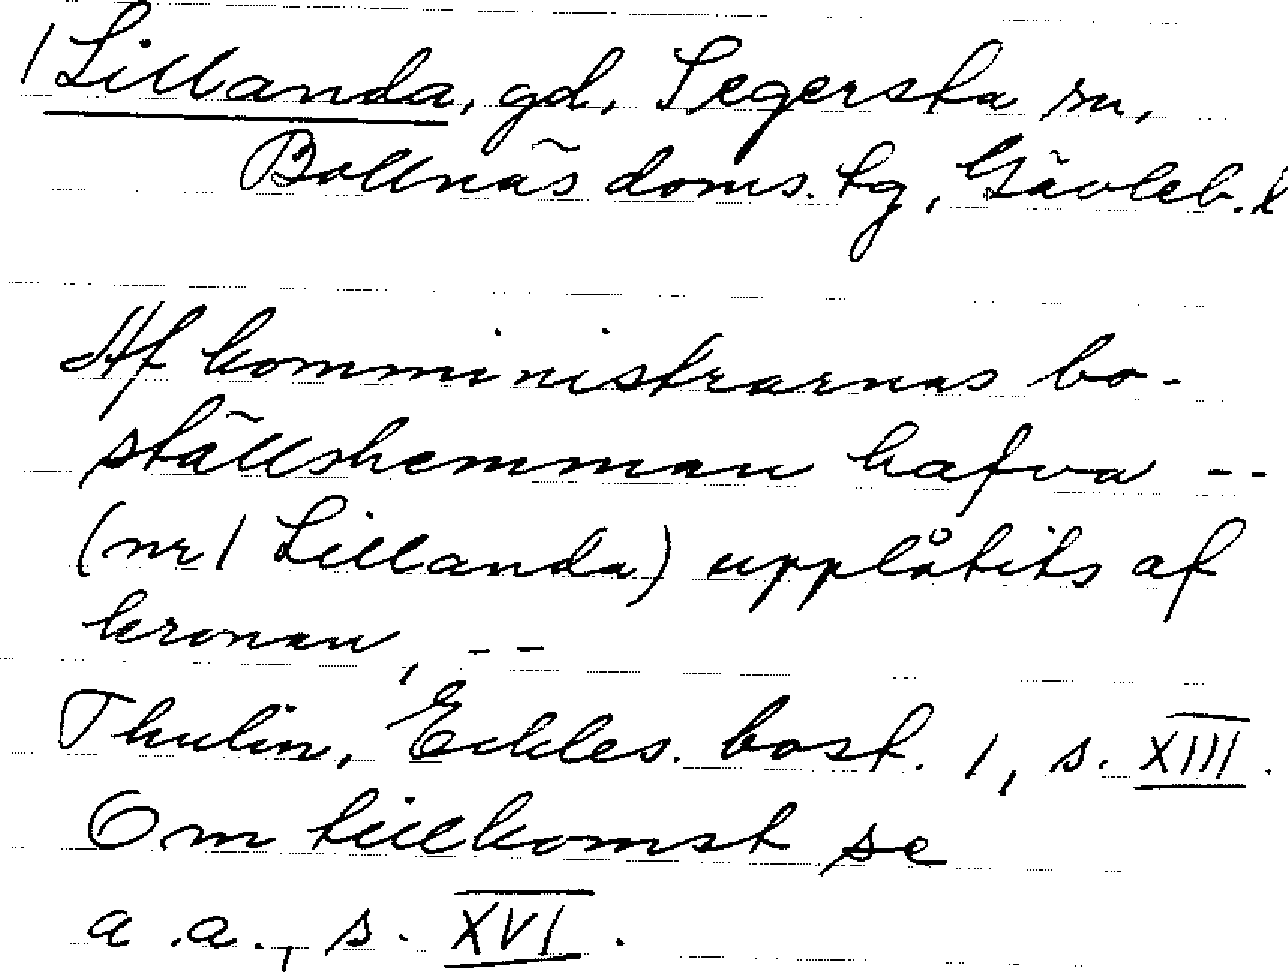 1 Lillanda, gd, Segersta sn,
Bollnäs doms. tg, Gävleb. l
Af komministrarnas bo-
ställshemman hafva --
(nr 1 Lillanda) upplåtits af
kronan, --
Thulin, Eckles. bost. 1, s. XIII.
Om tillkomst se
a.a., s. XVI.